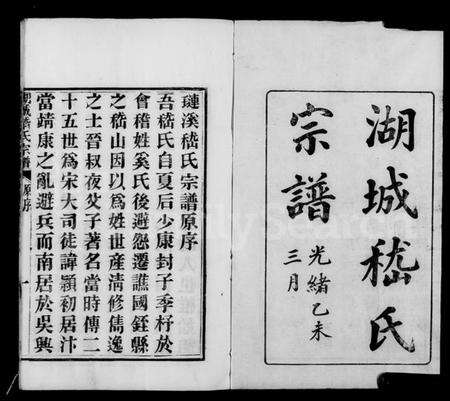 湖城嵇氏
宗譜
光緒乙未
三月
璉溪嵇氏宗譜原序
吾嵇氏自夏后少康封子季杼於
會稽姓奚氏後避怨遷譙國銍縣
之嵇山因以為姓世產清修儁逸
之士晉叔夜父子著名當時傳二
十五世為宋大司徒諱潁初居汴
當靖康之亂避兵而南居於吳興
湖城嵇氏宗譜 原序 一